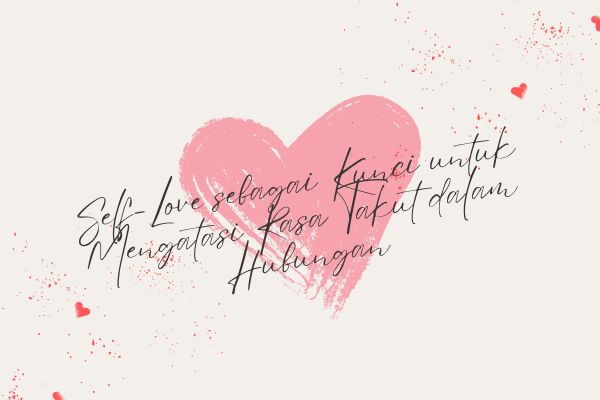 Self-Love sebagai Kunci untuk
Mengatasi Rasa Takut dalam
Hubungan